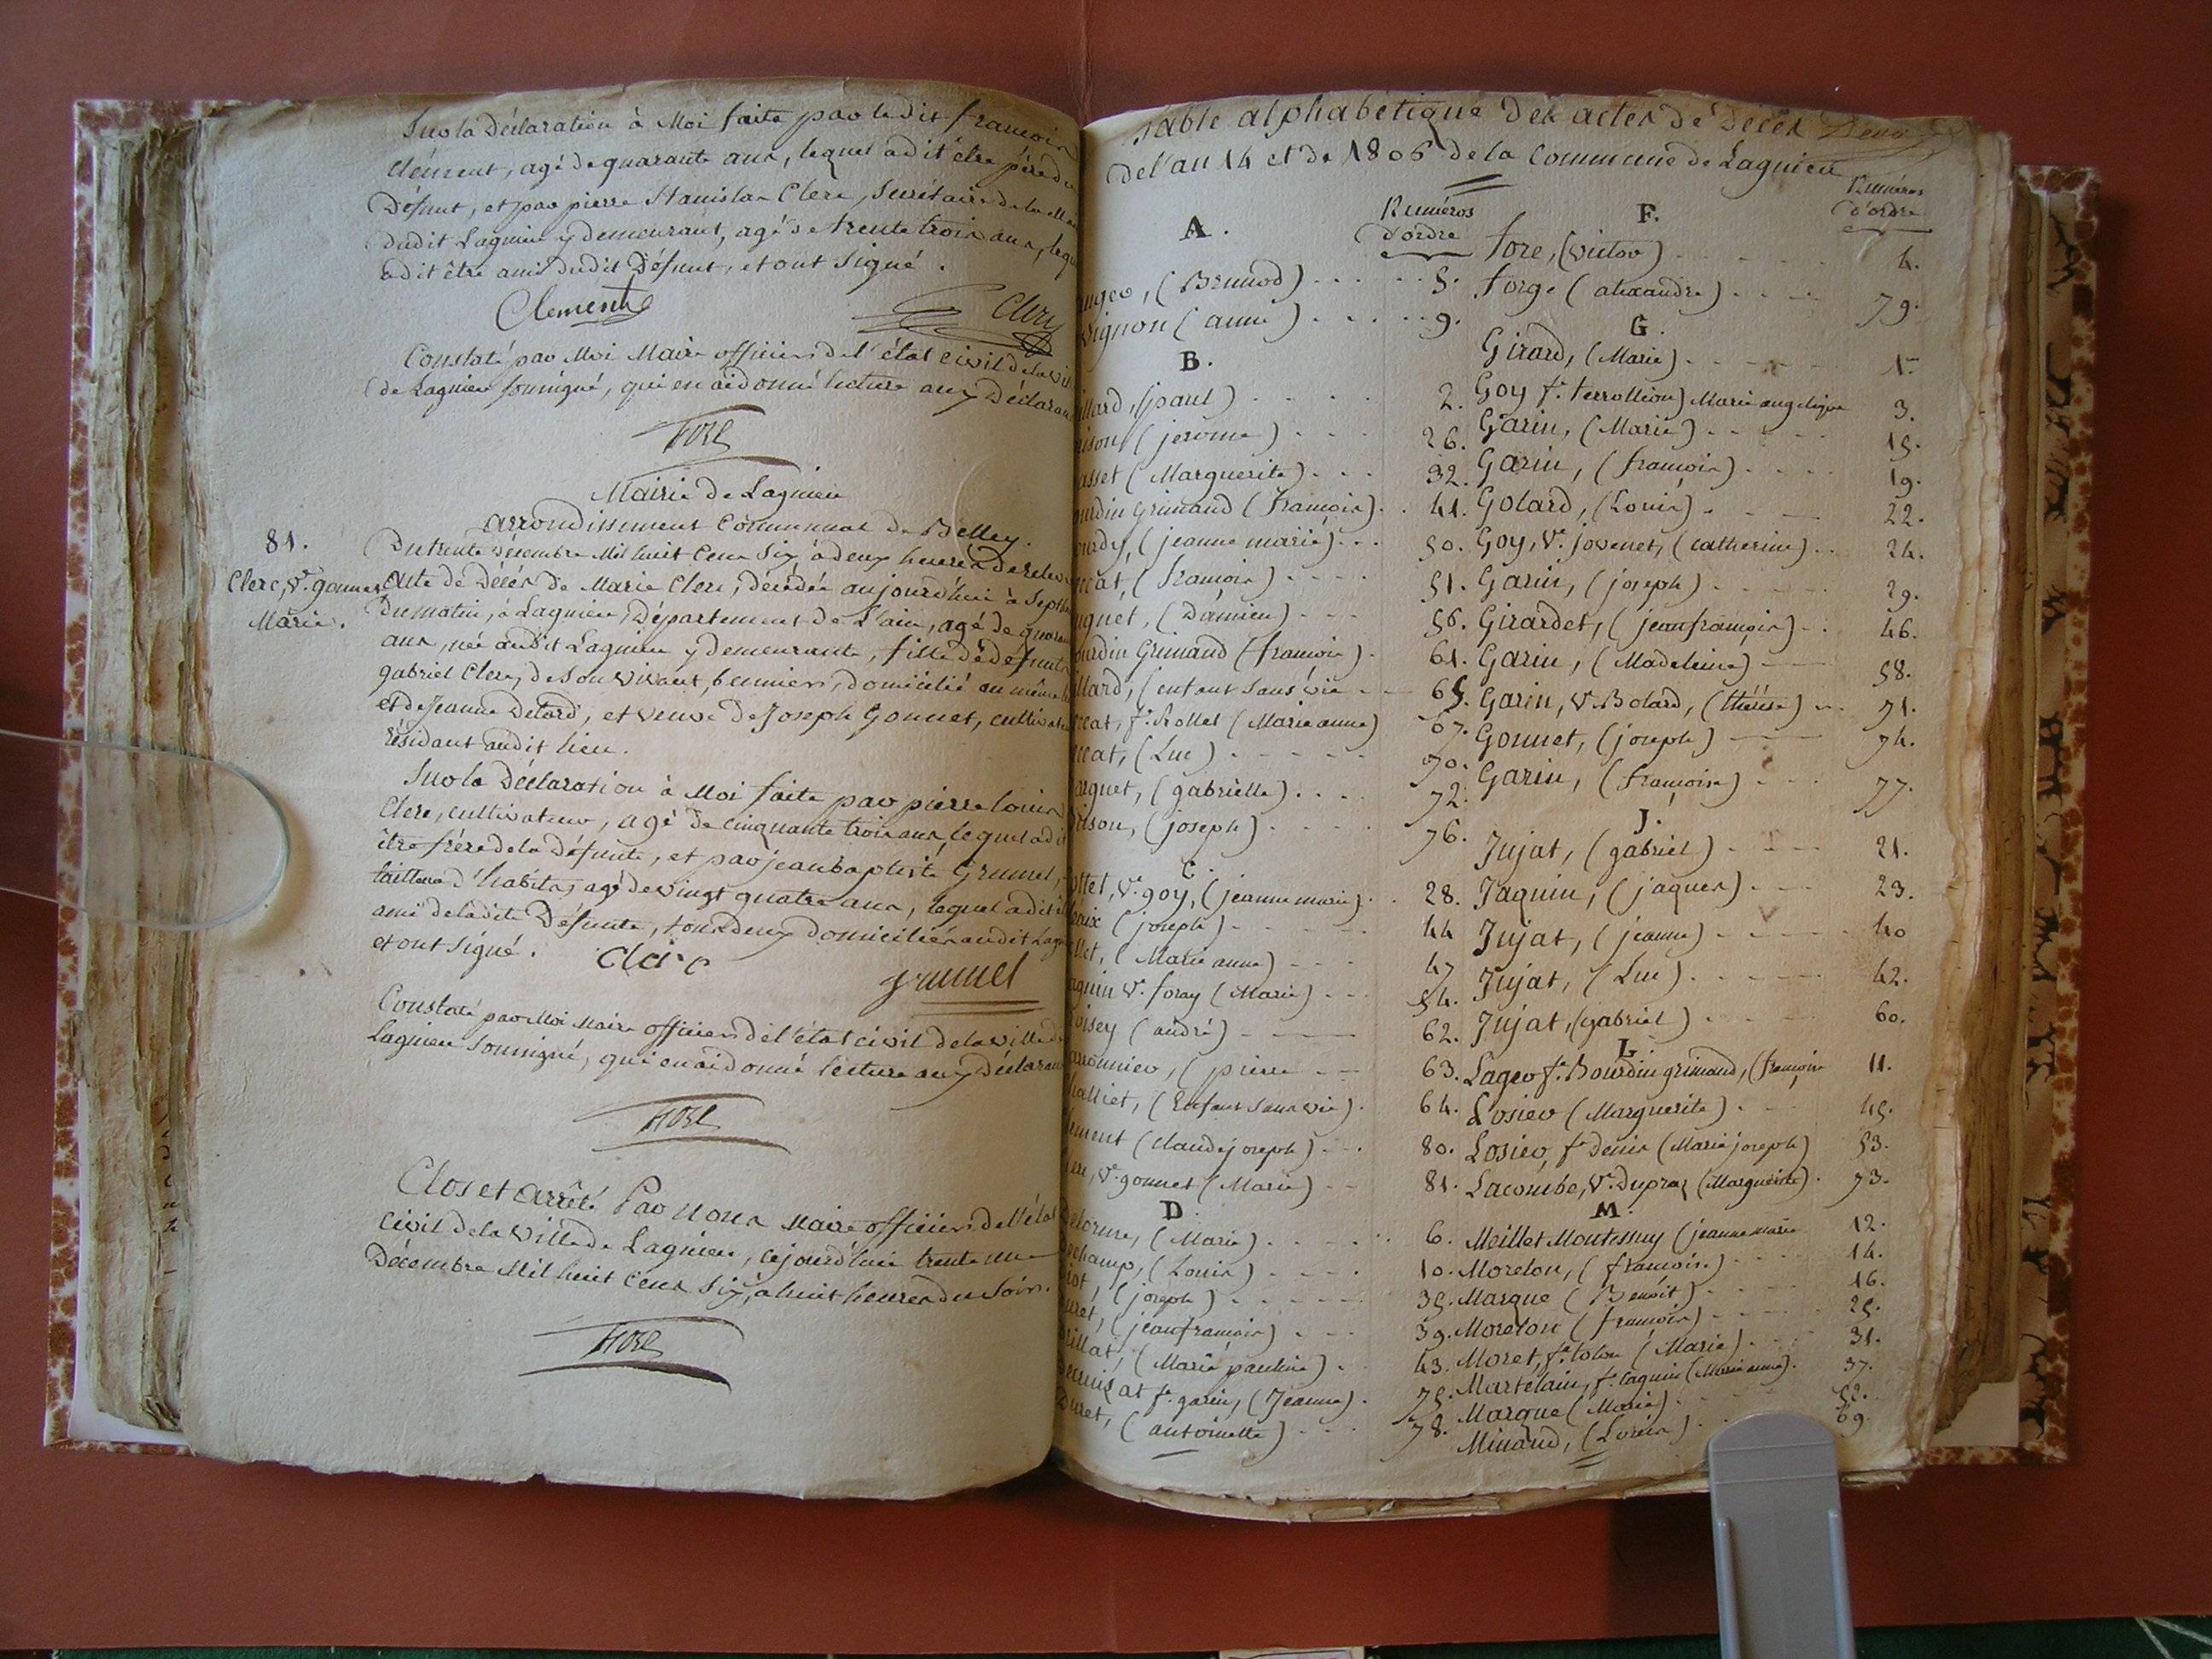 Sur la Déclaration à Moi faite par le dit françois
Clément, agé de quarante ans, lequel a dit être père du
Défunt, et par pierre Stanislas Clerc, Secrétaire de la
dudit Lagnieu y demeurant, agé de trente trois ans,
a dit être ami dudit Défunt, et ont signé.
Clement Clerc
Constaté par Moi Maire officier de l'état civil de la
de Lagnieu soussigné, qui en ai donné lecture aux
fore
Mairie de Lagnieu
arrondissement Communal de Belley.
81.
Clerc, Ve. gonnet
Marie.
Du trente Décembre Mil huit Cens Six à deux heures de
acte de Décès de Marie Clerc, décédée aujourd'hui à
Du matin, à Lagnieu, Département de L'ain, agé de
ans, née audit Lagnieu y demeurante, fille de défunt
gabriel Clerc, de son vivant, fermier, domicilié au même
et de Jeanne Detard, et veuve de Joseph Gonnet,
résidant audit lieu.
Sur la Déclaration à Moi faite par pierre louis
Clerc, cultivateur, agé de cinquante trois ans, lequel a dit
être frère de la défunte, et par jean baptiste Grumel,
tailleur d'habits, agé de vingt quatre ans, lequel a dit
ami de ladite Défunte, tous deux domiciliés audit
et ont signé. Clerc
grumel
Constaté par Moi Maire officier de l'état civil de la ville de
Lagnieu soussigné, qui en ai donné lecture aux
fore
Clos et arrêté Par Nous Maire officier de l'état
Civil de la Ville de Lagnieu, cejourd'hui trente un
Décembre Mil huit Cens Six, à huit heures du Soir.
fore
Table alphabétique des actes de Décès
de l'an 14 et de 1806 de la Commune de Lagnieu
A. Numéros d'ordre
(Brunod) 5.
(anne) 9.
B.
(paul) 2.
(jerome) 26.
(Marguerite) 32.
Grimaud (françois) 41.
(jeanne marie) 50.
(françois) 51.
(Damien) 56.
Grimaud (françois) 61.
(enfant sans vie 65.
fe. Rollet (Marie anne) 67.
(Luc) 70.
(gabrielle) 72.
(joseph) 76.
C.
Ve. goy, (jeanne marie) 28.
(joseph) 44
(Marie anne) 47
Ve. foray (Marie) 54.
(andré) 62.
(pierre 63.
(Enfant sans vie) 64.
(Claude joseph) 80.
Ve. gonnet (Marie) 81.
D.
(Marie) 6.
(Louis) 10.
(joseph) 35.
(jean françois) 39.
(Marie pauline) 43.
fe. garin, (Jeanne) 75.
(antoinette) 78.
F. Numéros d'ordre
fore, (victor) 4.
forge (alexandre) 79.
G.
Girard, (Marie) 1er
Goy fe. terrollion) Marie angelique 3.
Garin, (Marie) 15.
Garin, (françois) 19.
Golard, (Louis) 22.
Goy, Ve. jovenet, (catherine) 24.
Garin, (joseph) 29.
Girardet, (jean françois) 46.
Garin, (Madeleine) 58.
Garin, Ve. Bolard, (thérèse) 71.
Gonnet, (joseph) 74.
Garin, (françoise) 77.
J.
Jujat, (gabriel) 21.
Jaquin, (jaques) 23.
Jujat, (jeanne) 40
Jujat, (Luc) 42.
Jujat, (gabriel) 60.
L.
Lager fe. Bourdin grimaud, (françoise 11.
Losier (Marguerite) 45.
Losier, fe. Denis (Marie joseph) 53.
Lacombe, Ve. Dupraz (Marguerite) 73.
M.
Meillet Montessuy (jeanne marie 12.
Morelon, (françois.) 14.
Marque (Benoit) 16.
Morelon (françois) 25.
Moret, fe. tolon (Marie) 31.
Martelain, fe. Caquin (Marie anne) 37.
Marque (Marie) 52.
Minaud, (Louis) 69.